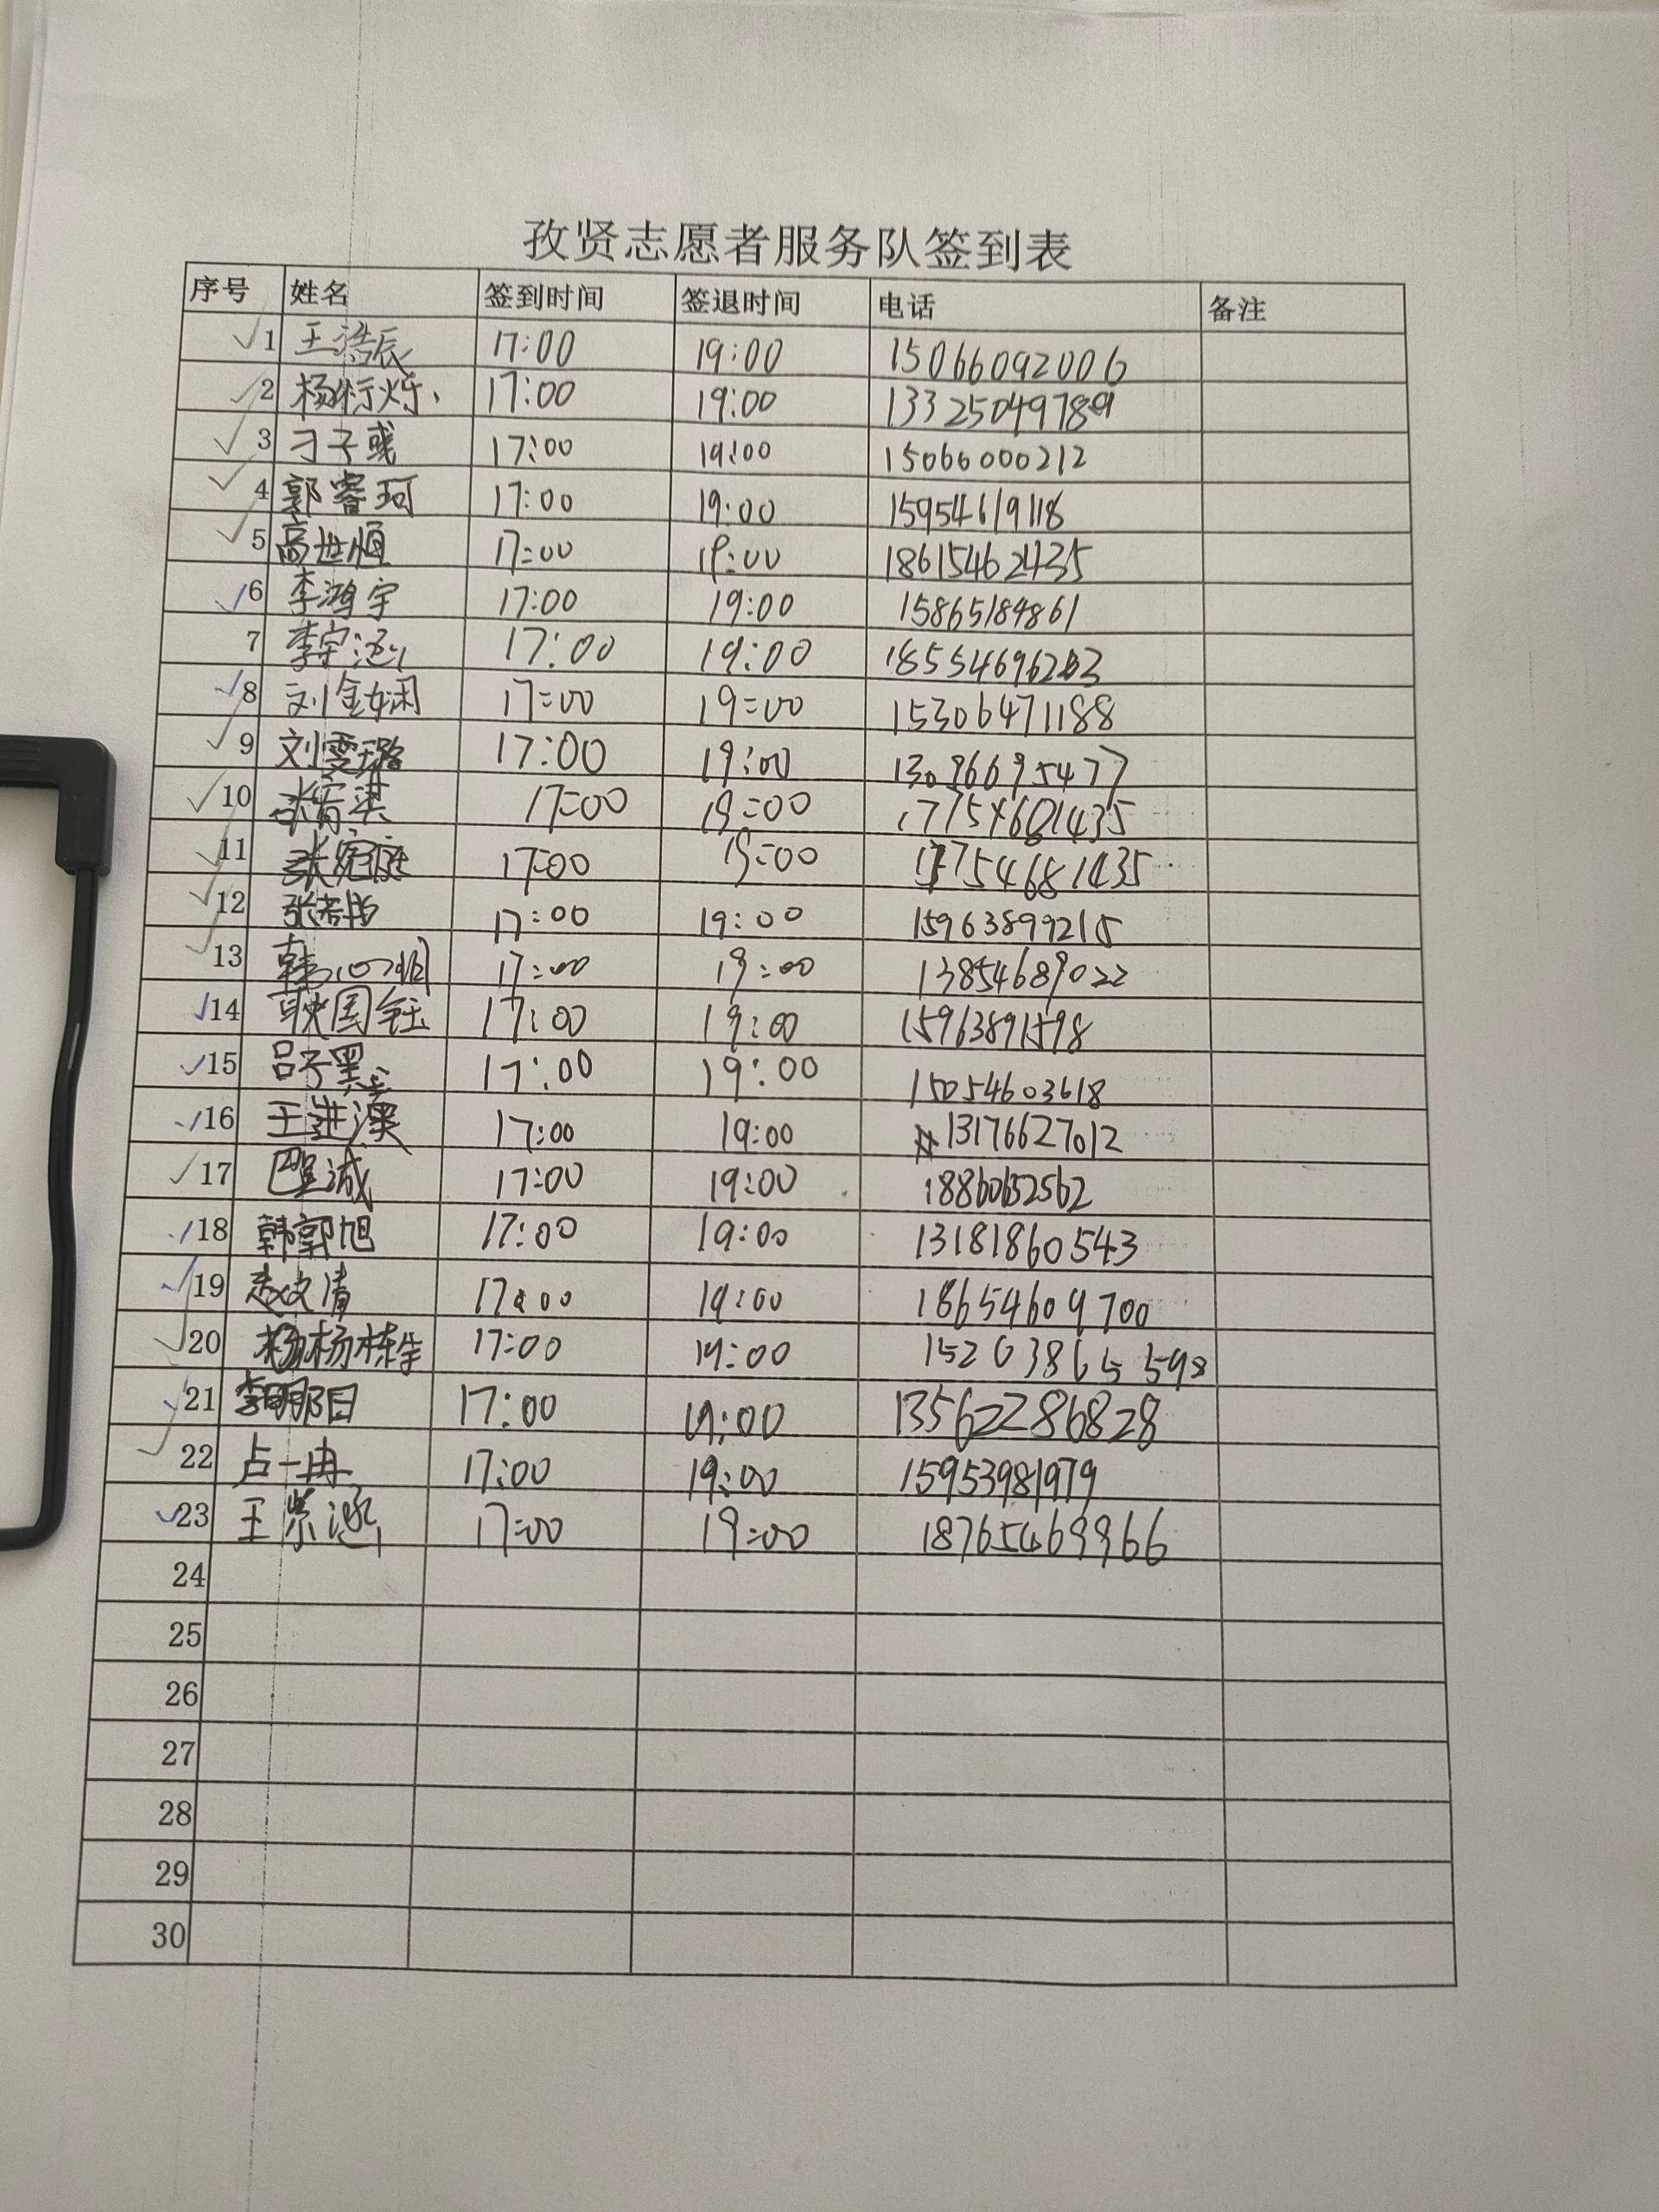 孜贤志愿者服务队签到表
序号 姓名 签到时间 签退时间 电话 备注
1 王浩辰 17:00 19:00 15066092006
2 杨衍烁 17:00 19:00 13325049789
3 刁子彧 17:00 19:00 15066000212
4 郭睿珂 17:00 19:00 15954619118
5 高世恒 17:00 19:00 18615462435
6 李鸿宇 17:00 19:00 15865184861
7 李宇涵 17:00 19:00 18554696203
8 刘金娴 17:00 19:00 15306471188
9 刘雯璐 17:00 19:00 13096695477
10 17:00 19:00
11 17:00 19:00 17754681435
12 17:00 19:00 15963899215
13 韩 17:00 19:00 13854689022
14 耿国钰 17:00 19:00 15963891598
15 吕子墨 17:00 19:00 15054603618
16 王进澳 17:00 19:00 13176627012
17 17:00 19:00
18 韩郭旭 17:00 19:00 13181860543
19 赵文清 17:00 19:00 18654609700
20 杨栋 17:00 19:00 15263865598
21 17:00 19:00 13562286828
22 占一冉 17:00 19:00 15953981979
23 王紫涵 17:00 19:00 18765469966
24
25
26
27
28
29
30